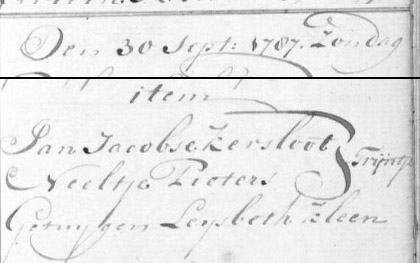 Den 30 Sept: 1787. Zondag
item
Jan Jacobse Kersloot
Neeltje Pieters } Trijntje
Getuygen Leysbeth Kleen